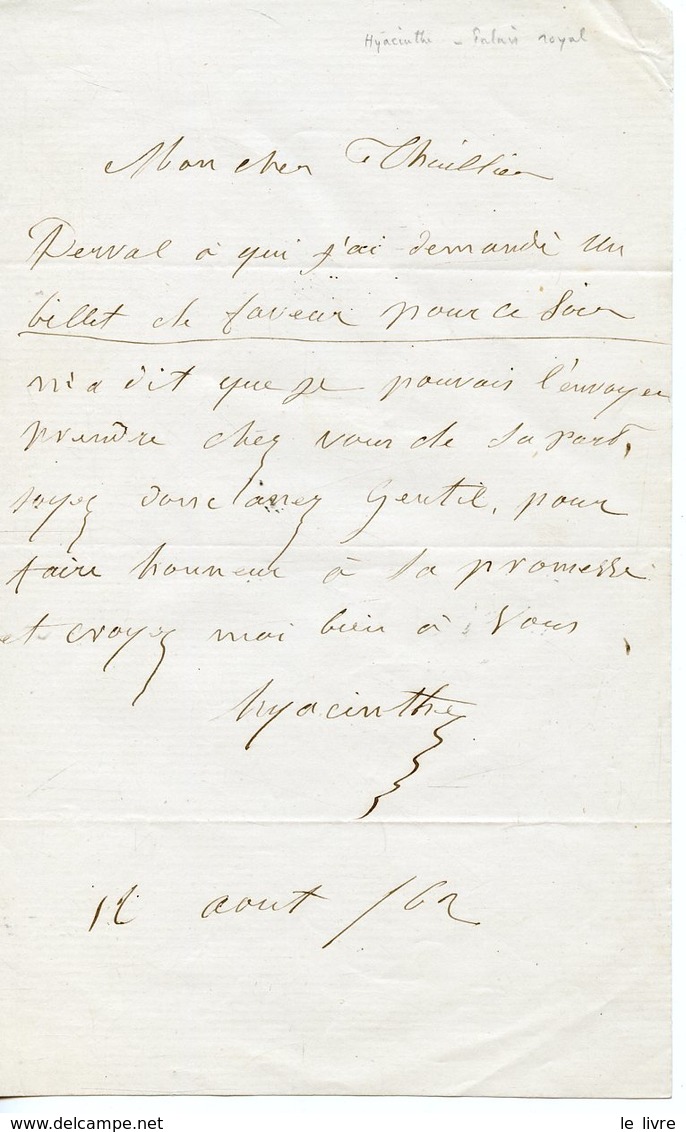 Hyacinthe - Palais royal
Mon cher Thuillier
Derval à qui j'ai demandé un
billet de faveur pour ce soir
m'a dit que je pouvais l'envoyer
prendre chez vous de sa part,
soyez donc assez Gentil, pour
faire honneur à sa promesse
et croyez moi bien à vous
hyacinthe
12 aout /62
www.delcampe.net
le livre